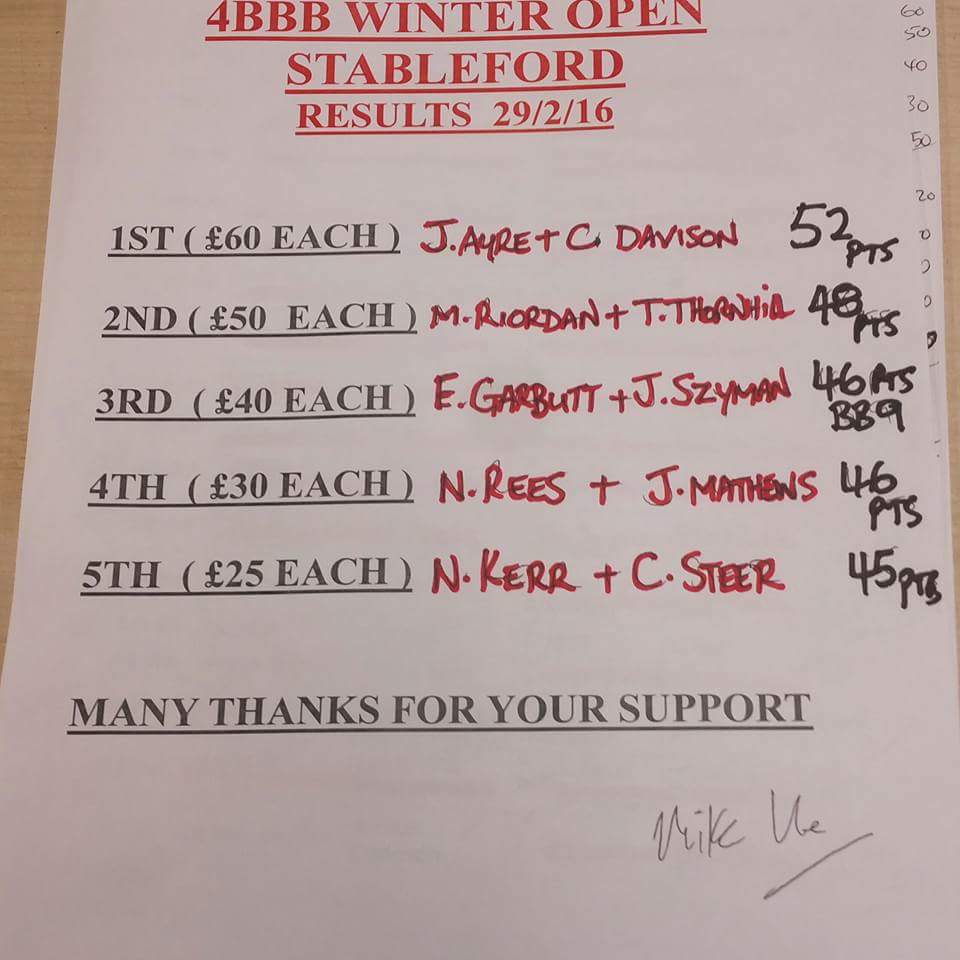 4BBB WINTER OPEN
STABLEFORD
RESULTS 29/2/16
60
50
40
30
50
20
1ST ( £60 EACH ) J. AYRE + C DAVISON 52 PTS
2ND ( £50 EACH ) M. RIORDAN + T. THORNHILL 48 PTS
3RD ( £40 EACH ) E. GARBUTT + J. SZYMAN 46 PTS BB9
4TH ( £30 EACH ) N. REES + J. MATHENS 46 PTS
5TH ( £25 EACH ) N. KERR + C. STEER 45 PTS
MANY THANKS FOR YOUR SUPPORT
Mike